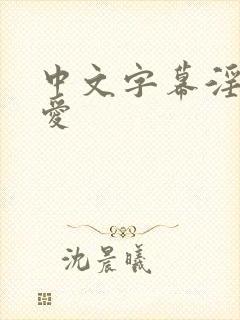 中文字幕淫
愛
沈晨曦